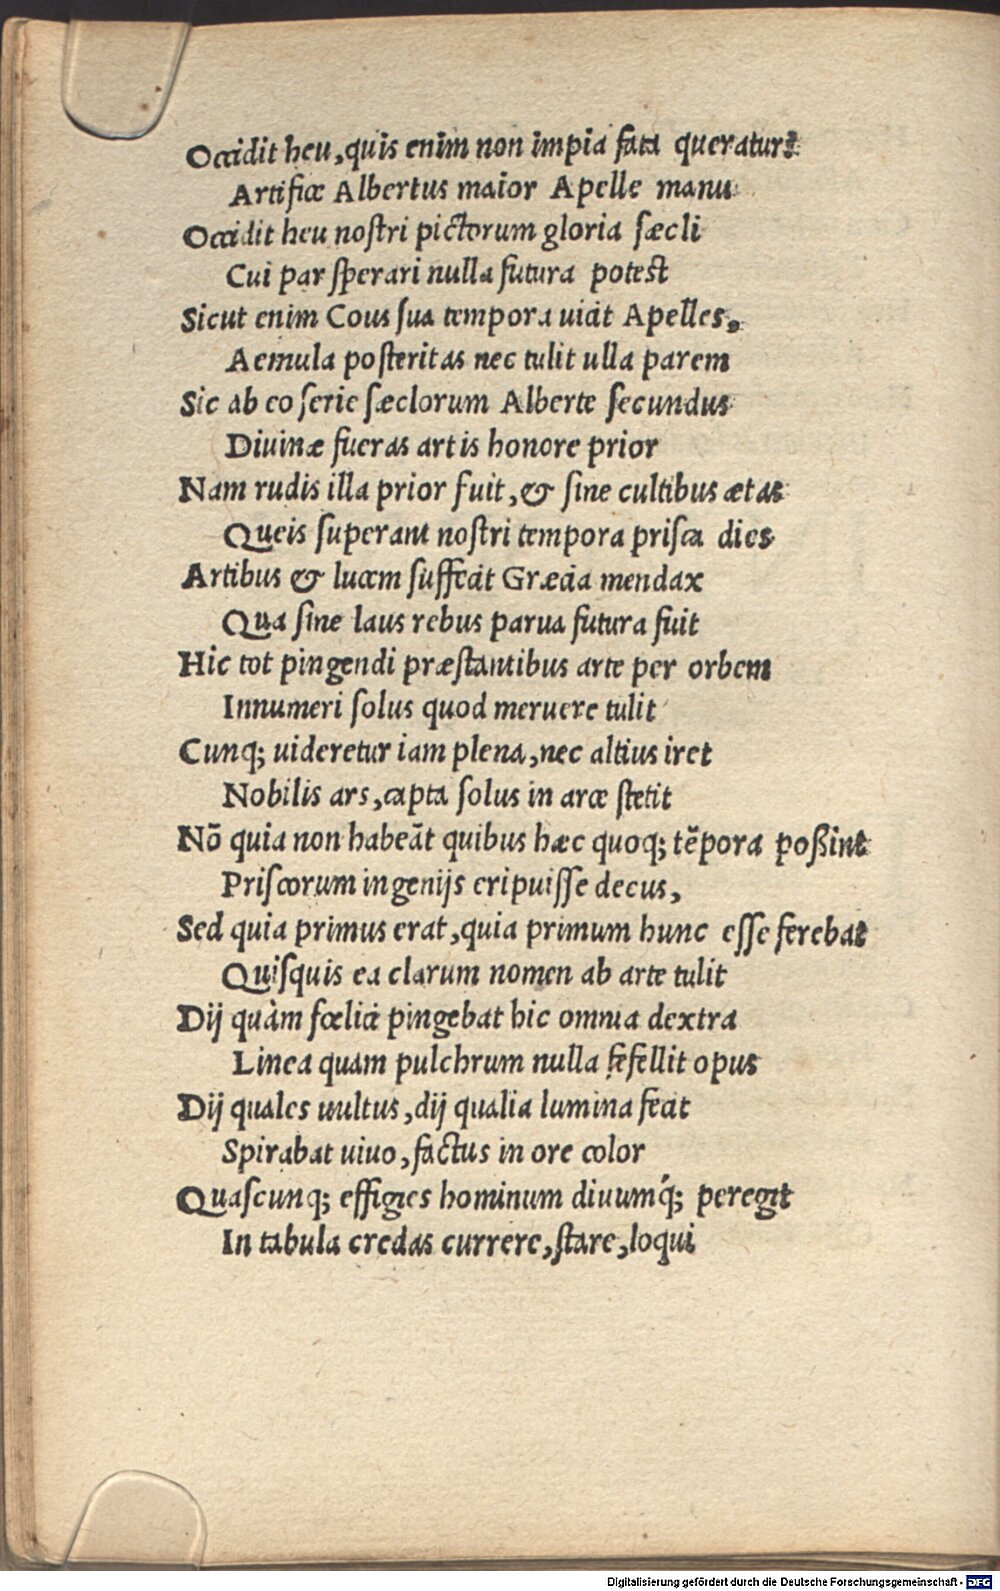 Occidit heu, quis enim non impia fata queratur?
Artifice Albertus maior Apelle manu
Occidit heu nostri pictorum gloria sæcli
Cui par sperari nulla futura potest
Sicut enim Cous sua tempora vicit Apelles,
Aemula posteritas nec tulit ulla parem
Sic ab eo serie sæclorum Alberte secundus
Divinæ fueras artis honore prior
Nam rudis illa prior fuit, & sine cultibus ætas
Queis superant nostri tempora prisca dies
Artibus & lucem suffecit Græcia mendax
Qua sine laus rebus parva futura fuit
Hic tot pingendi præstantibus arte per orbem
Innumeri solus quod meruere tulit
Cunq; uideretur iam plena, nec altius iret
Nobilis ars, capta solus in arce stetit
Nō quia non habeāt quibus hæc quoq; tēpora possint
Priscorum ingenijs eripuisse decus,
Sed quia primus erat, quia primum hunc esse ferebat
Quisquis ea clarum nomen ab arte tulit
Dij quàm fœlici pingebat hic omnia dextra
Linea quam pulchrum nulla fefellit opus
Dij quales uultus, dij qualia lumina fecit
Spirabat uiuo, factus in ore color
Quascunq; effigies hominum diuumq́; peregit
In tabula credas currere, stare, loqui
Digitalisierung gefördert durch die Deutsche Forschungsgemeinschaft - DFG